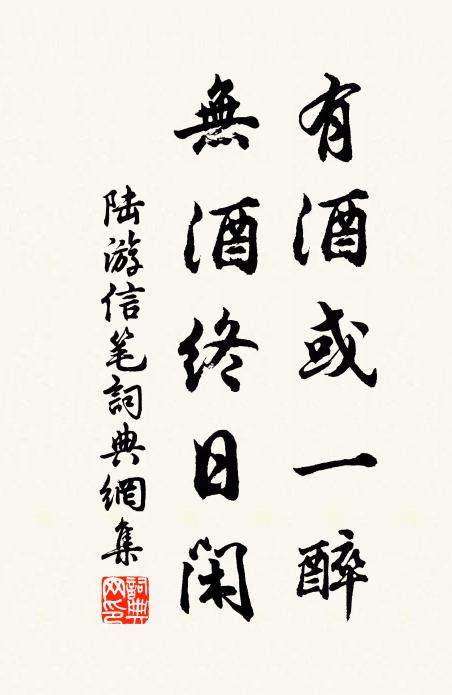 有酒或一醉
無酒終日閑
陆游信笔詞典網集
詞典网印